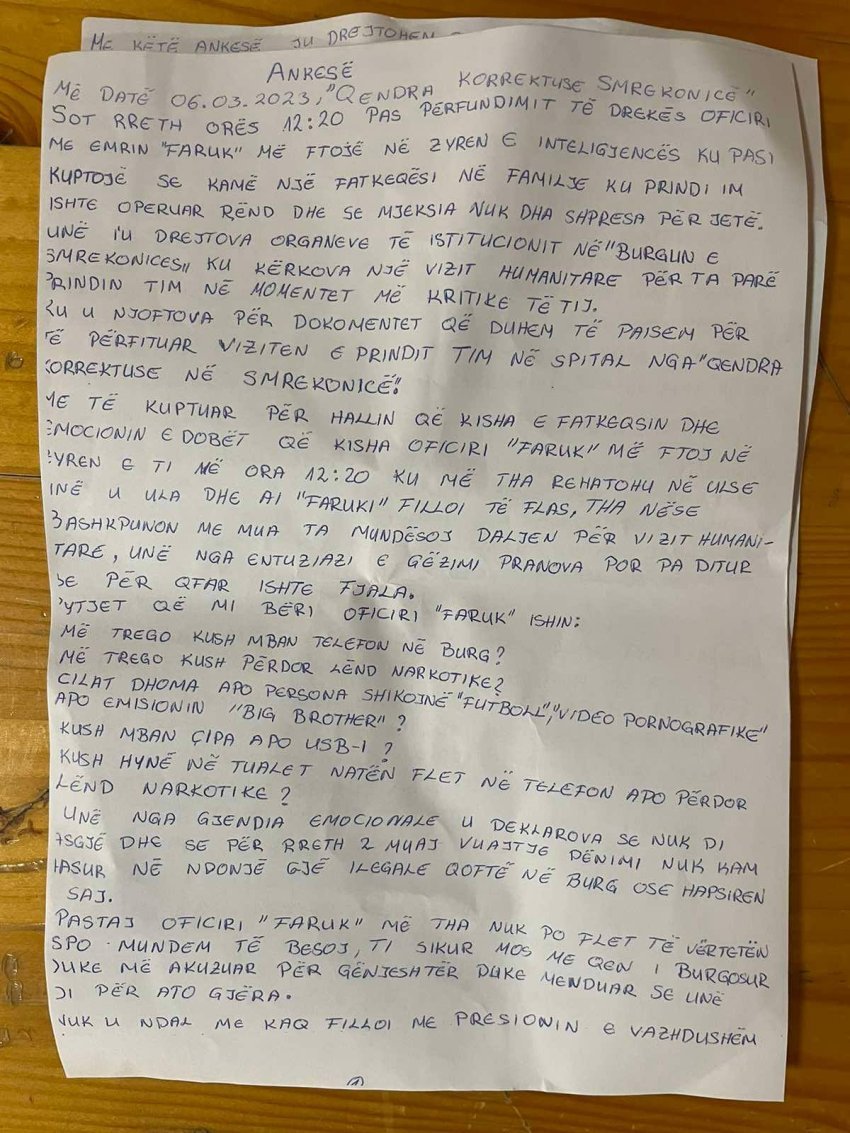 ME KËTË ANKESË JU DREJTOHEM
ANKESË
MË DATË 06.03.2023, "QENDRA KORREKTUSE SMREKONICË"
SOT RRETH ORËS 12:20 PAS PËRFUNDIMIT TË DREKËS OFICIRI
ME EMRIN "FARUK" MË FTOJË NË ZYREN E INTELIGJENCËS KU PASI
KUPTOJË SE KAMË NJË FATKEQËSI NË FAMILJE KU PRINDI IM
ISHTE OPERUAR RËND DHE SE MJEKSIA NUK DHA SHPRESA PËR JETË.
UNË I'U DREJTOVA ORGANEVE TË ISTITUCIONIT NË "BURGUN E
SMREKONICES" KU KËRKOVA NJË VIZIT HUMANITARE PËR TA PARË
PRINDIN TIM NË MOMENTET MË KRITIKE TË TIJ.
KU U NJOFTOVA PËR DOKOMENTET QË DUHEM TË PAISEM PËR
TË PËRFITUAR VIZITEN E PRINDIT TIM NË SPITAL NGA "QENDRA
KORREKTUSE NË SMREKONICË".
ME TË KUPTUAR PËR HALLIN QË KISHA E FATKEQSIN DHE
EMOCIONIN E DOBËT QË KISHA OFICIRI "FARUK" MË FTOJ NË
ZYREN E TI MË ORA 12:20 KU MË THA REHATOHU NË ULSE
UNË U ULA DHE AI "FARUKI" FILLOI TË FLAS, THA NËSE
BASHKPUNON ME MUA TA MUNDËSOJ DALJEN PËR VIZIT HUMANI-
TARE, UNË NGA ENTUZIAZI E GËZIMI PRANOVA POR PA DITUR
SE PËR QFAR ISHTE FJALA.
PYTJET QË MI BËRI OFICIRI "FARUK" ISHIN:
MË TREGO KUSH MBAN TELEFON NË BURG?
MË TREGO KUSH PËRDOR LËND NARKOTIKE?
CILAT DHOMA APO PERSONA SHIKOJNË "FUTBOLL", "VIDEO PORNOGRAFIKE"
APO EMISIONIN "BIG BROTHER"?
KUSH MBAN ÇIPA APO USB-I?
KUSH HYNË NË TUALET NATËN FLET NË TELEFON APO PËRDOR
LËND NARKOTIKE?
UNË NGA GJENDIA EMOCIONALE U DEKLAROVA SE NUK DI
ASGJË DHE SE PËR RRETH 2 MUAJ VUAJTJE DËNIMI NUK KAM
HASUR NË NDONJË GJË ILEGALE QOFTË NË BURG OSE HAPSIREN
SAJ.
PASTAJ OFICIRI "FARUK" MË THA NUK PO FLET TË VËRTETËN
SPO MUNDEM TË BESOJ, TI SIKUR MOS ME QEN I BURGOSUR
DUKE MË AKUZUAR PËR GËNJESHTËR DUKE MENDUAR SE UNË
DI PËR ATO GJËRA.
NUK U NDAL ME KAQ FILLOI ME PRESIONIN E VAZHDUSHËM
1